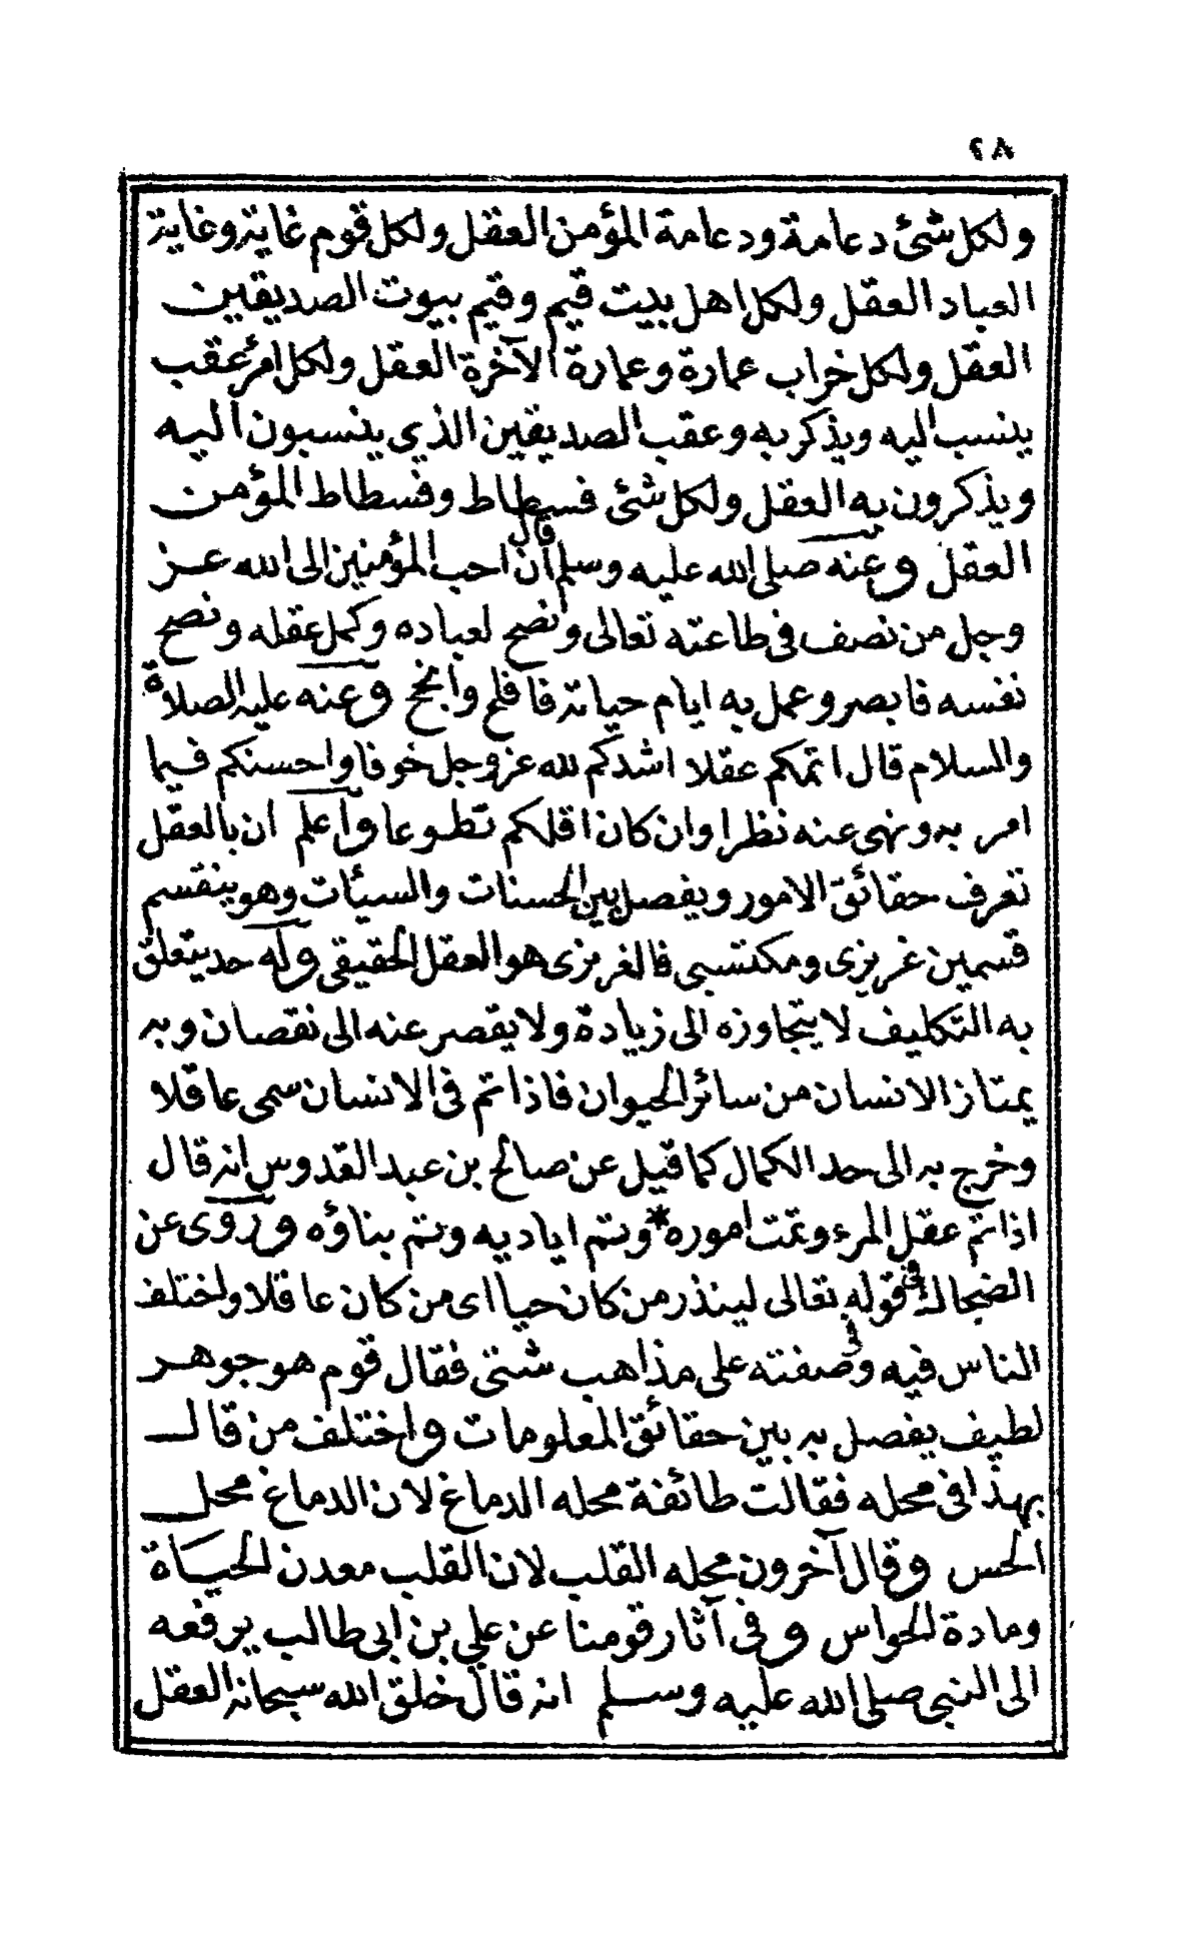 ٢٨
ولكل شئ دعامة ودعامة المؤمن العقل ولكل قوم غاية وغاية
العباد العقل ولكل اهل بيت قيم وقيم بيوت الصديقين
العقل ولكل خراب عمارة وعمارة الآخرة العقل ولكل امرئ عقب
ينسب اليه ويذكر به وعقب الصديقين الذي ينسبون اليه
ويذكرون به العقل ولكل شئ فسطاط وفسطاط المؤمن
العقل وعنه صلى الله عليه وسلم قال أن احب المؤمنين الى الله عز
وجل من نصف فى طاعته تعالى ونصح لعباده وكمل عقله ونصح
نفسه فابصر وعمل به ايام حياته فأفلح وأنجح وعنه عليه الصلاة
والسلام قال اتمكم عقلا اشدكم لله عز وجل خوفا واحسنكم فيما
امر به ونهى عنه نظرا وان كان اقلكم تطوعا وأعلم ان بالعقل
تعرف حقائق الامور ويفصل بين الحسنات والسيئات وهو ينقسم
قسمين غريزى ومكتسبى فالغريزى هو العقل الحقيقى وله حد يتعلق
به التكليف لا يتجاوزه الى زيادة ولا يقصر عنه الى نقصان وبه
يمتاز الانسان من سائر الحيوان فاذا تم فى الانسان سمى عاقلا
وخرج به الى حد الكمال كما قيل عن صالح بن عبد القدوس انه قال
اذا تم عقل المرء وتمت اموره * وتم اياديه وتم بناؤه وروى عن
الضحاك فى قوله تعالى لينذر من كان حيا اى من كان عاقلا واختلف
الناس فيه وفى صفته على مذاهب شتى فقال قوم هو جوهر
لطيف يفصل به بين حقائق المعلومات واختلف من قال
بهذا فى محله فقالت طائفة محله الدماغ لان الدماغ محل
الحس وقال آخرون محله القلب لان القلب معدن الحياة
ومادة الحواس وفى آثار قومنا عن علي بن ابى طالب يرفعه
الى النبى صلى الله عليه وسلم انه قال خلق الله سبحانه العقل